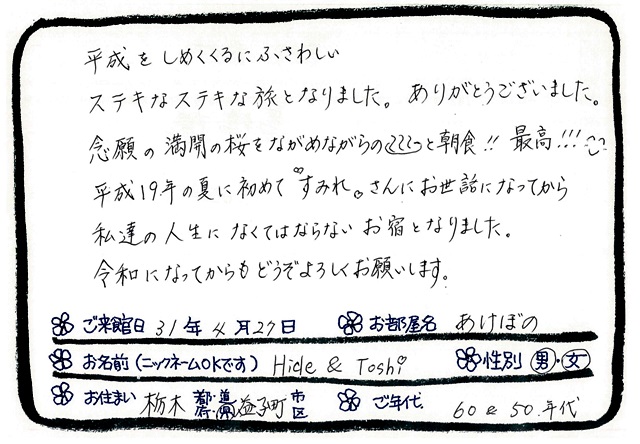 平成をしめくくるにふさわしい
ステキなステキな旅となりました。ありがとうございました。
念願の満開の桜をながめながらの♨と朝食!! 最高!!!
平成19年の夏に初めて"すみれ"さんにお世話になってから
私達の人生になくてはならないお宿となりました。
令和になってからもどうぞよろしくお願いします。
ご来館日 31年4月27日 お部屋名 あけぼの
お名前(ニックネームOKです) Hide & Toshi 性別 男・女
お住まい 栃木 都・道・府・県 益子町 市区 ご年代. 60 & 50.年代